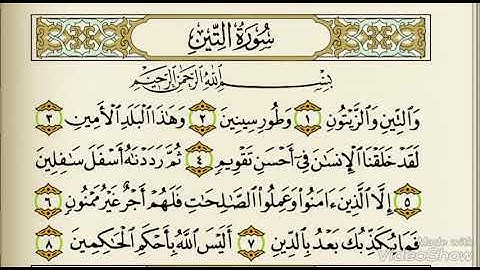 سُورَةُ التِّينِ
بِسْمِ اللَّهِ الرَّحْمَٰنِ الرَّحِيمِ
وَالتِّينِ وَالزَّيْتُونِ ١ وَطُورِ سِينِينَ ٢ وَهَٰذَا الْبَلَدِ الْأَمِينِ ٣
لَقَدْ خَلَقْنَا الْإِنسَٰنَ فِي أَحْسَنِ تَقْوِيمٍ ٤ ثُمَّ رَدَدْنَٰهُ أَسْفَلَ سَٰفِلِينَ
٥ إِلَّا الَّذِينَ ءَامَنُوا وَعَمِلُوا الصَّٰلِحَٰتِ فَلَهُمْ أَجْرٌ غَيْرُ مَمْنُونٍ ٦
فَمَا يُكَذِّبُكَ بَعْدُ بِالدِّينِ ٧ أَلَيْسَ اللَّهُ بِأَحْكَمِ الْحَٰكِمِينَ ٨
Made with
VideoShow